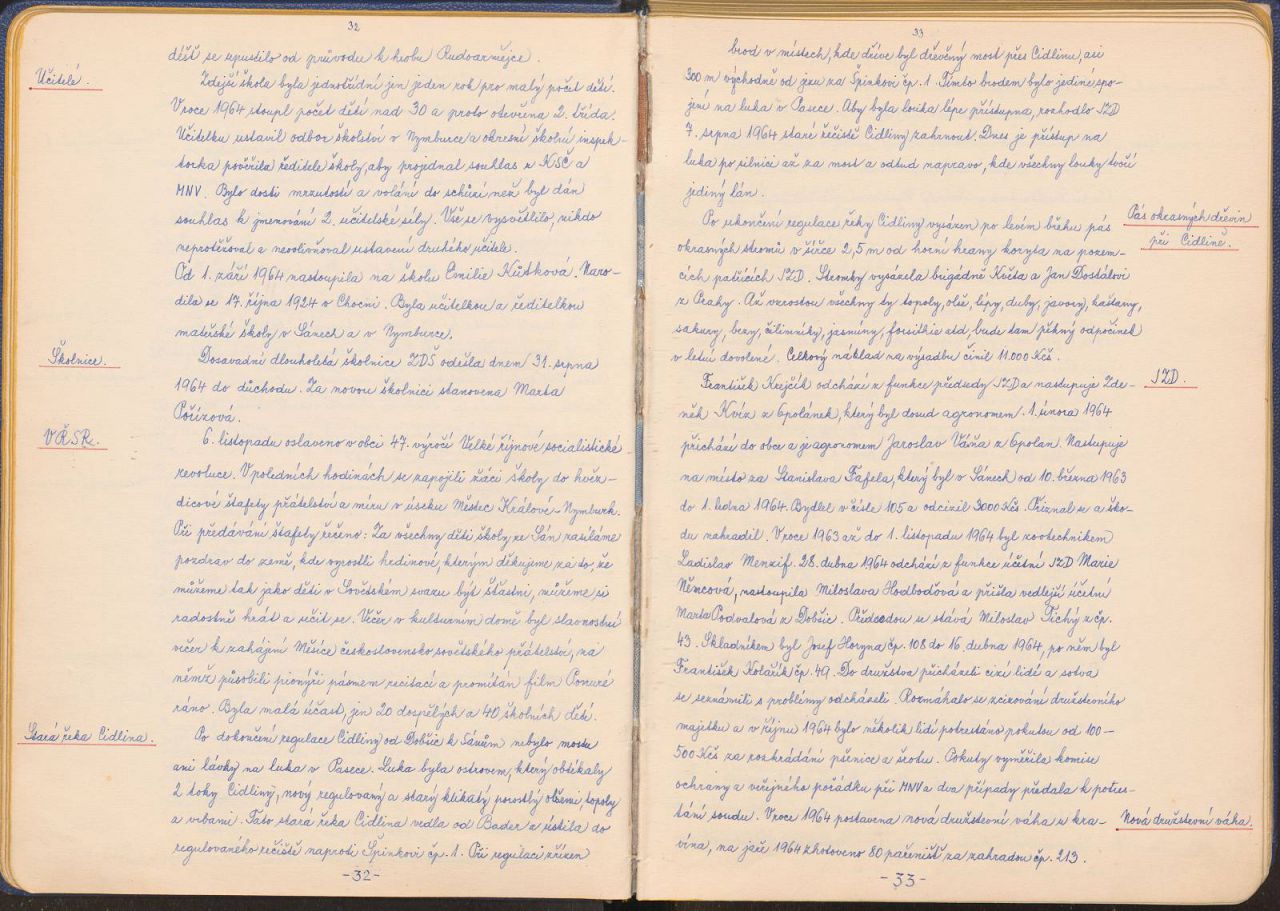 32
déšť se upustilo od průvodu k hrobu Rudoarmějce.
Učitelé.
Zdejší škola byla jednotřídní jen jeden rok pro malý počet dětí.
V roce 1964 stoupl počet dětí nad 30 a proto otevřena 2. třída.
Učitelku ustavil odbor školství v Nymburce a okresní školní inspek-
torka pověřila ředitele školy, aby projednal souhlas z KSČ a
MNV. Bylo dosti mrzutostí a volání do schůzí než byl dán
souhlas k jmenování 2. učitelské síly. Vše se vysvětlilo, nikdo
neprotěžoval a neovlivňoval ustavení druhého učitele.
Od 1. září 1964 nastoupila na školu Emilie Květková. Naro-
dila se 17. října 1924 v Chocni. Byla učitelkou a ředitelkou
mateřské školy v Sánech a v Nymburce.
Školnice.
Dosavadní dlouholetá školnice ZDŠ odešla dnem 31. srpna
1964 do důchodu. Za novou školnici stanovena Marta
Pořízová.
VŘSR.
6. listopadu oslaveno v obci 47. výročí Velké říjnové socialistické
revoluce. V poledních hodinách se zapojili žáci školy do hvěz-
dicové štafety přátelství a míru v úseku Městec Králové - Nymburk.
Při předávání štafety řečeno: Za všechny děti školy ze Sán zasíláme
pozdrav do země, kde vyrostli hrdinové, kterým děkujeme za to, že
můžeme tak jako děti v Sovětském svazu být šťastni, můžeme si
radostně hrát a učit se. Večer v kulturním domě byl slavnostní
večer k zahájení Měsíce československo sovětského přátelství, na
němž působili pionýři pásmem recitací a promítán film Ponuré
ráno. Byla malá účast, jen 20 dospělých a 40 školních dětí.
Stará řeka Cidlina.
Po dokončení regulace Cidliny od Dobšic k Sánům nebylo mostu
ani lávky na luka v Pasece. Luka byla ostrovem, který obtékaly
2 toky Cidliny, nový regulovaný a starý klikatý porostlý olšemi, topoly
a vrbami. Tato stará řeka Cidlina vedla od Bader z ústila do
regulovaného řečiště naproti Špinkovi čp. 1. Při regulaci zřízen
-32-
33
brod v místech, kde dříve byl dřevěný most přes Cidlinu, asi
300 m východně od jezu za Špinkovi čp. 1. Tímto brodem bylo jediné spo-
jení na luka v Pasece. Aby byla louka lépe přístupna, rozhodlo JZD
7. srpna 1964 staré řečiště Cidliny zahrnout. Dnes je přístup na
luka po silnici až za most a odtud napravo, kde všechny louky tvoří
jediný lán.
Pás okrasných dřevin
při Cidlině.
Po ukončení regulace řeky Cidliny vysázen po levém břehu pás
okrasných stromů v šířce 2,5 m od horní hrany koryta na pozem-
cích patřících JZD. Stromky vysázela brigádně Květa a Jan Dostálovi
z Prahy. Až vzrostou všechny ty topoly, olše, lípy, duby, javory, kaštany,
sakury, bezy, čilimníky, jasmíny, forsitkie atd, bude tam pěkný odpočinek
v letní dovolené. Celkový náklad na výsadbu činil 11.000 Kčs.
JZD.
František Krejčík odchází z funkce předsedy JZD a nastupuje Zde-
něk Kvíz z Opolánek, který byl dosud agronomem. 1. února 1964
přichází do obce a je agronomem Jaroslav Váňa z Opolan. Nastupuje
na místo za Stanislava Fafela, který byl v Sánech od 10. března 1963
do 1. ledna 1964. Bydlel v čísle 105 a odcizil 3000 Kčs. Přiznal se a ško-
du nahradil. V roce 1963 až do 1. listopadu 1964 byl zootechnikem
Ladislav Menzif. 28. dubna 1964 odchází z funkce účetní JZD Marie
Němcová, nastoupila Miloslava Hodboďová a přišla vedlejší účetní
Marta Podvalová z Dobšic. Předsedou se stává Miloslav Tichý z čp.
43. Skladníkem byl Josef Horyna čp. 108 do 16. dubna 1964, po něm byl
František Kolařík čp. 49. Do družstva přicházeli cizí lidé a sotva
se seznámili s problémy odcházeli. Rozmáhalo se zcizování družstevního
majetku a v říjnu 1964 bylo několik lidí potrestáno pokutou od 100-
500 Kčs za rozkrádání pšenice a šrotu. Pokuty vyměřila komise
ochrany a veřejného pořádku při MNV a dva případy předala k potres-
tání soudu. V roce 1964 postavena nová družstevní váha u kra-
Nová družstevní váha.
vína, na jaře 1964 zhotoveno 80 pařenišť za zahradou čp. 213.
-33-